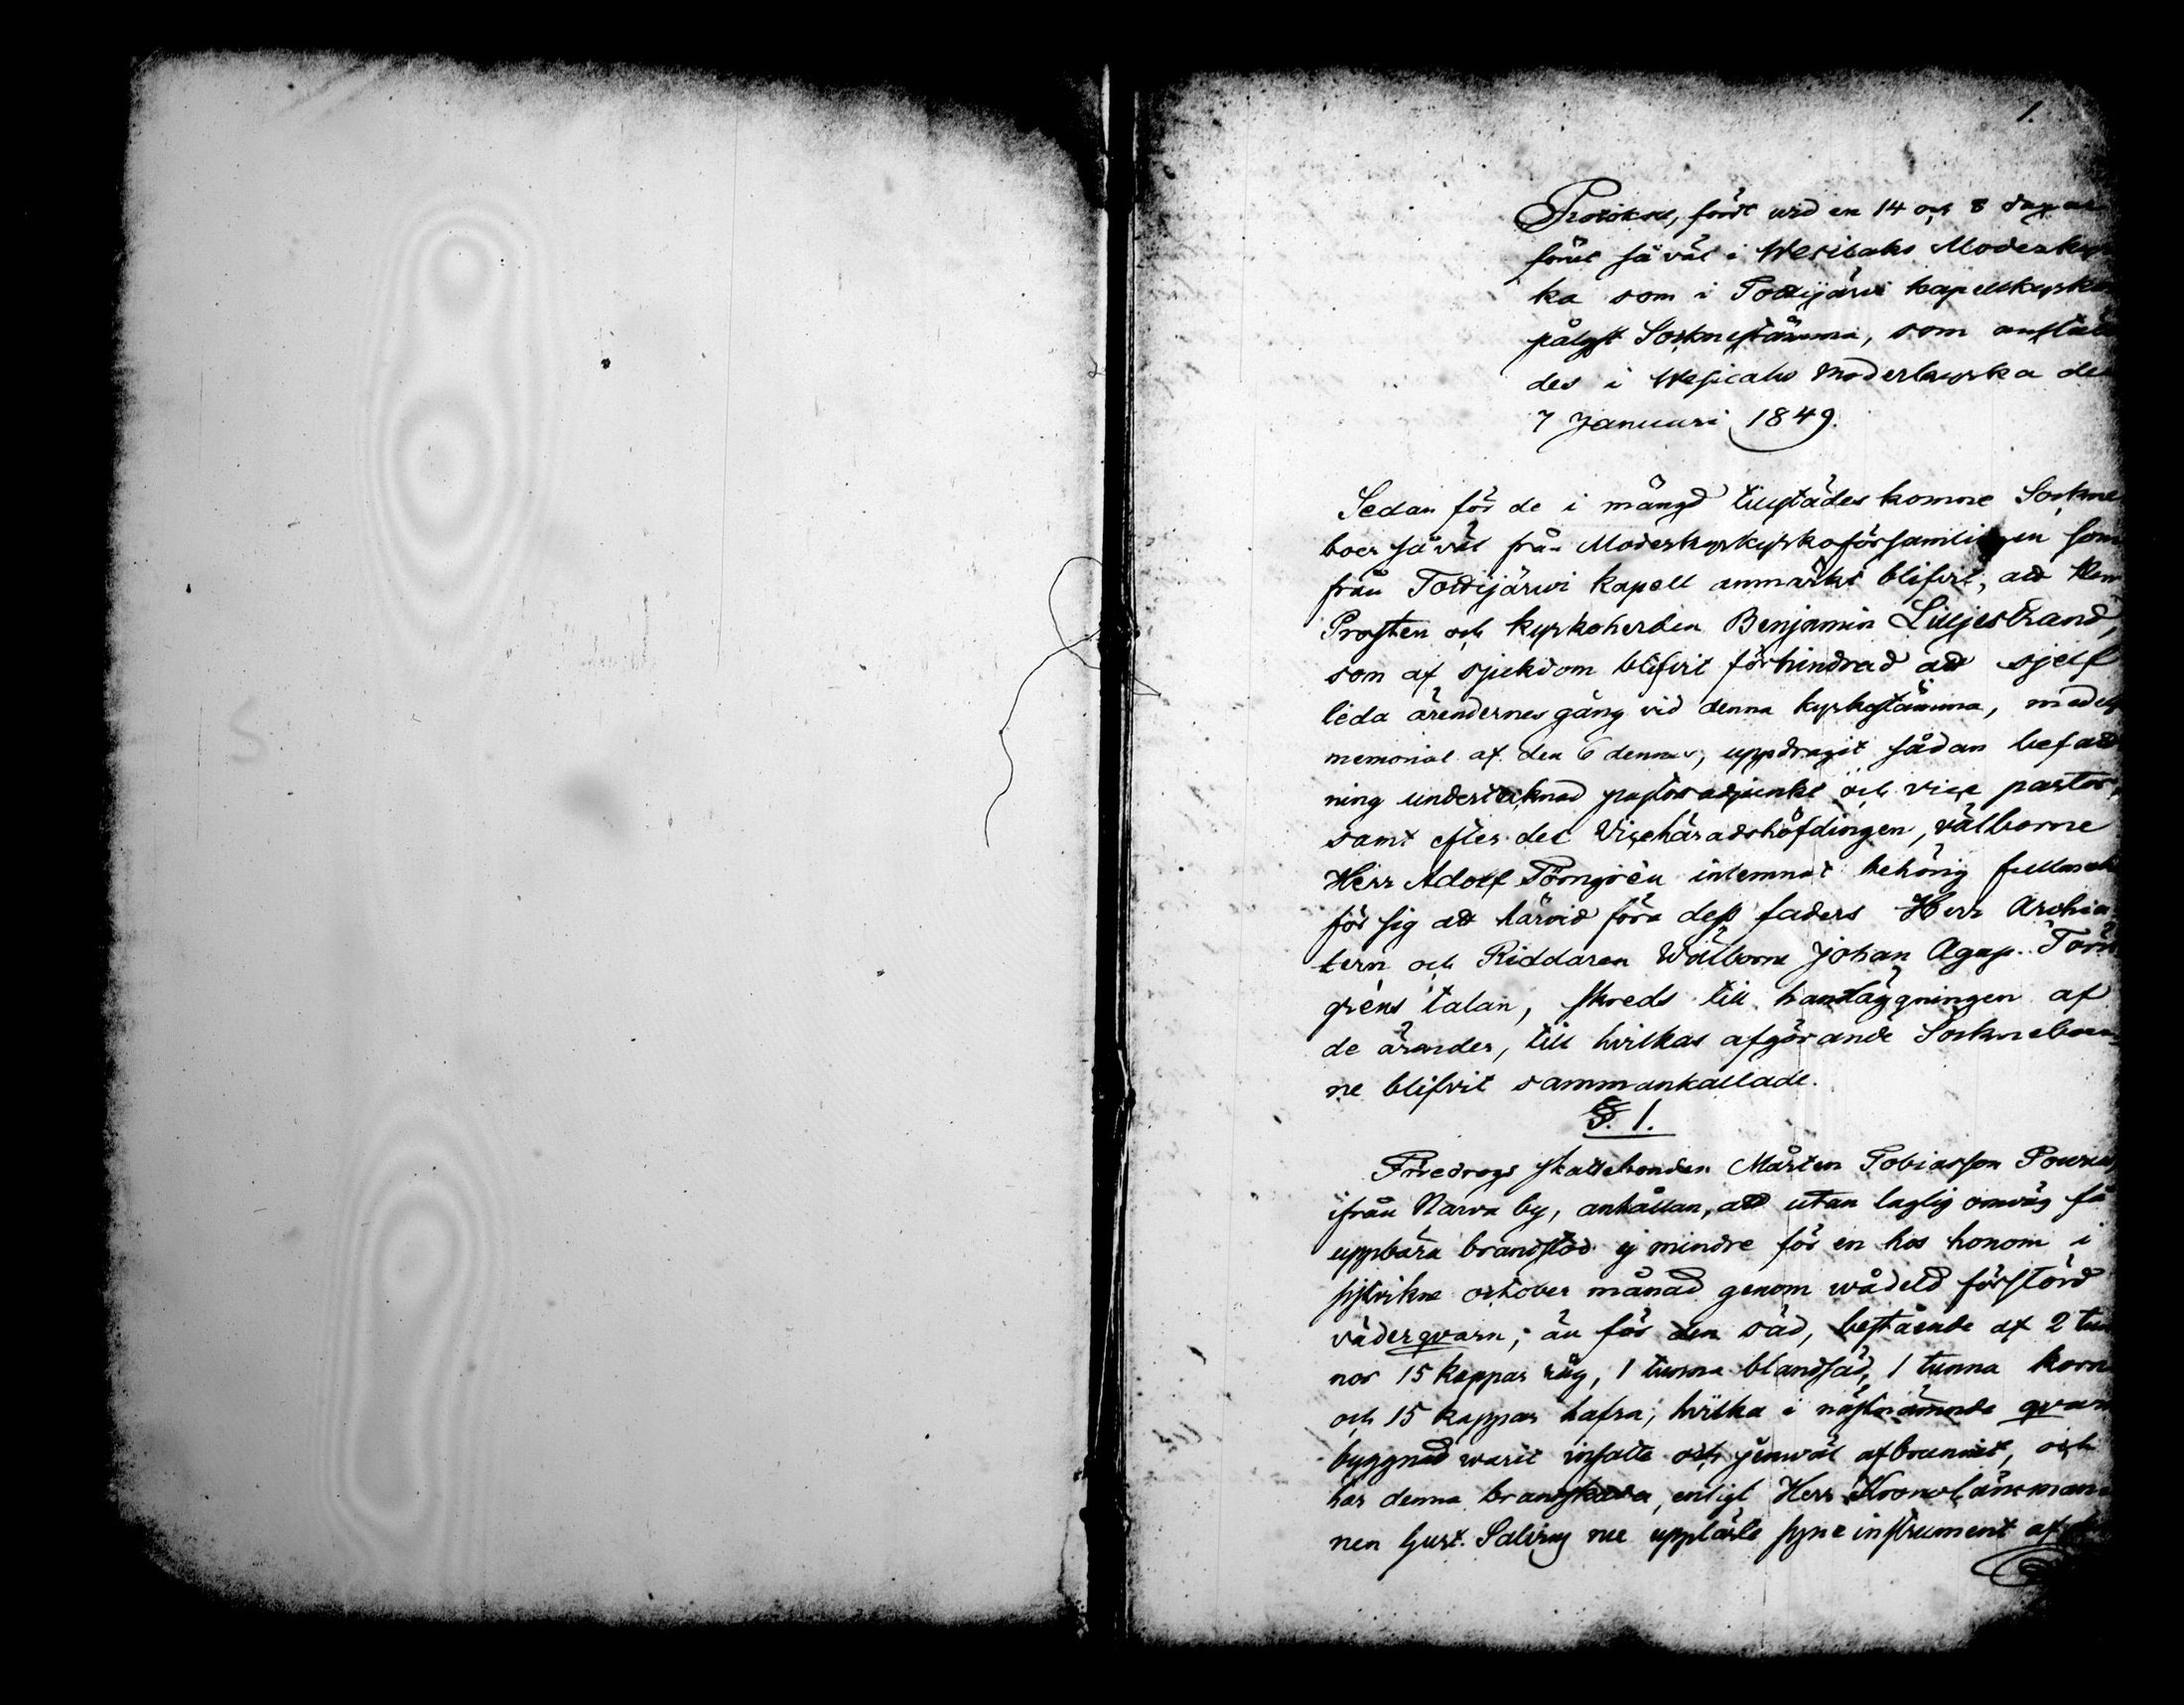 1.
Protokoll, fördt wid en 14 och 8 dagar
förut så väl i Wesilaks Moderkyr
ka som i Tottijärvi kapellkyrka
pålyst Socknestämma, som anstäl
des i Wesilaks Moderkyrka den
7 Januari 1849.
Sedan för de i mängd tillstädes komne Sockne
boer så väl från Moderkyrkoförsamlingen som
från Tottijärvi kapell anmärkt blifvit, att Herr
Prosten och kyrkoherden Benjamin Liljestrand,
som af sjukdom blifvit förhindrad att sjelf
leda ärendernes gång vid denna kyrkostämma, medelst
memorial af den 6 dennes, uppdragit sådan befatt
ning undertecknad pastorsadjunkt och vice pastor,
samt efter det Vicehäradshöfdingen, välborne
Herr Adolf Törngrén inlemnat behörig fullmakt
för sig att härvid föra dess faders Herr Archia
tern och Riddaren Wälborne Johan Agap. Törn
gréns talan, skreds till handläggningen af
de ärender, till hvilkas afgörande Sockneboer
ne blifvit sammankallade.
§. 1.
Föredrogs skattebonden Mårten Tobiasson
ifrån Narva by, anhållan, att utan laglig omväg få
uppbära brandstod ej mindre för en hos honom i
sistvikne october månad genom wådeld förstörd
väderqvarn, än för den säd, bestående af 2 tun
nor 15 kappar råg, 1 tunna blandsäd, 1 tunna korn
och 15 kappar hafra, hvilka i nästnämnde qvarn
byggnad warit insatte och jemväl afbrunnit, och
har denna brandskada, enligt Herr Kronolänsman
nen Gust. nu uppläste syneinstrument af